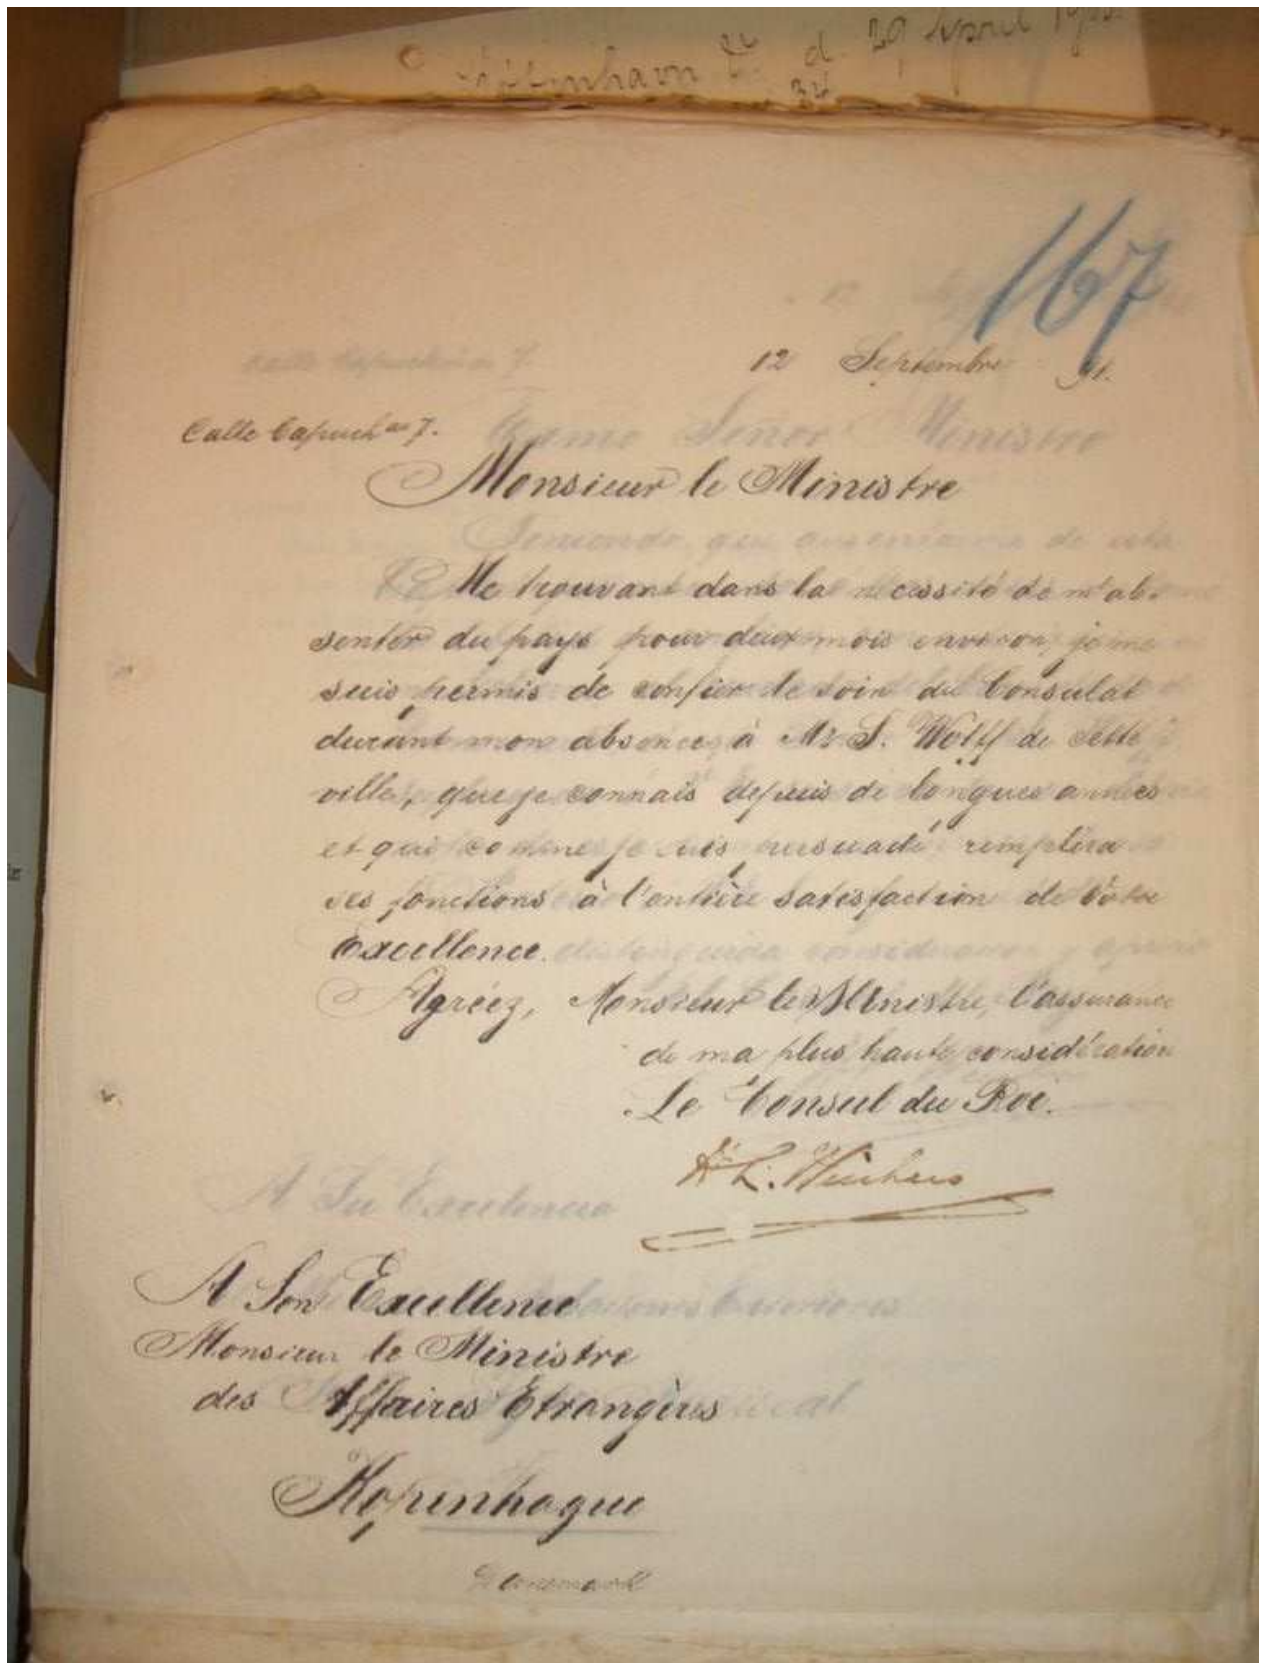 d. 29 April
167
12 Septembre 91.
Calle Capuch as 7.
Señor Ministro
Monsieur le Ministre
Me trouvant dans la nécessité de m'ab-
senter du pays pour deux mois environ, je me
suis permis de confier le soin du Consulat
durant mon absence, à Mr S. Wolff de cette
ville, que je connais depuis de longues années
et qui comme je suis persuadé remplira
ses fonctions à l'entière satisfaction de Votre
Excellence.
Agréez, Monsieur le Ministre, l'assurance
de ma plus haute considération
Le Consul du Roi.
A Su Excelencia
A Son Excellence
Monsieur le Ministre
des Affaires Etrangères
Kopenhague
Danemark